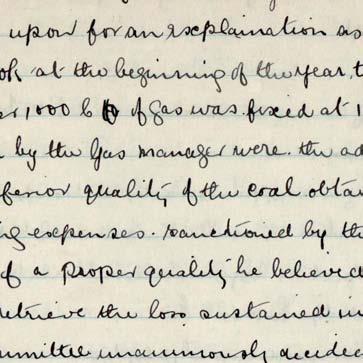 upon for an explaination as
ok at the beginning of the year, t
er 1,000 b of gas was fixed at 1
by the Gas manager were. the ad
ferior quality of the coal obtai
ng expenses. sanctioned by the
of a proper quality he believed
retrieve the loss sustained in
mmittee unanimously decided